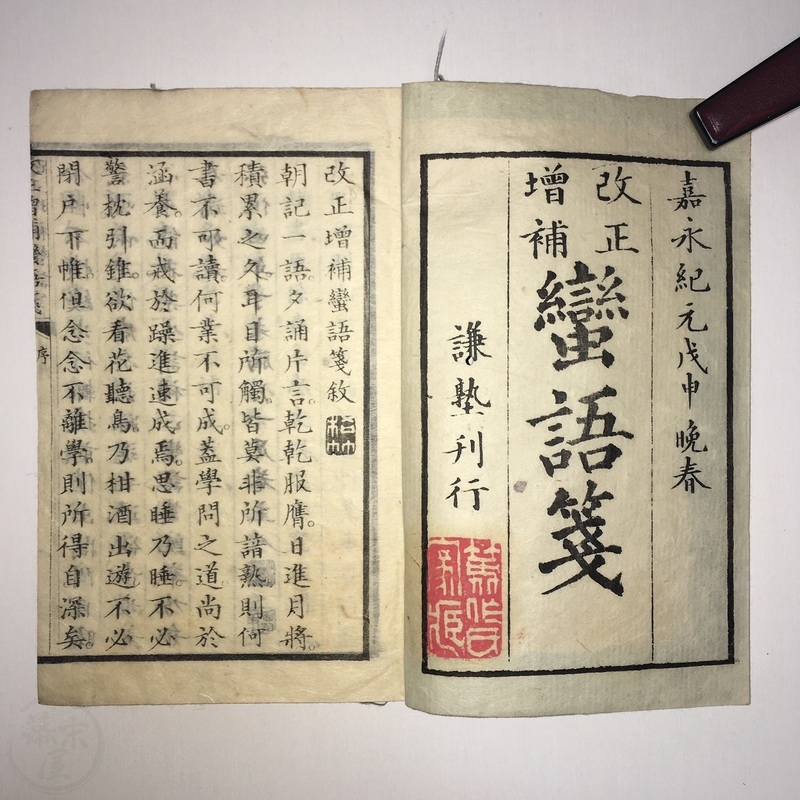 嘉永紀元戊申晩春
改正
增補
蠻語箋
謙塾刊行
改正增補蠻語箋敘
朝記一語夕誦片言。乾乾服膺。日進月將。
積累之久。耳目所觸。皆莫非所諳熟則何
書不可讀。何業不可成。蓋學問之道。尚於
涵養。而戒於躁進速成焉。思睡乃睡。不必
警枕引錐。欲看花聽鳥。乃相酒出遊。不必
閉戶下帷。俱念念不離學。則所得自深矣。
序